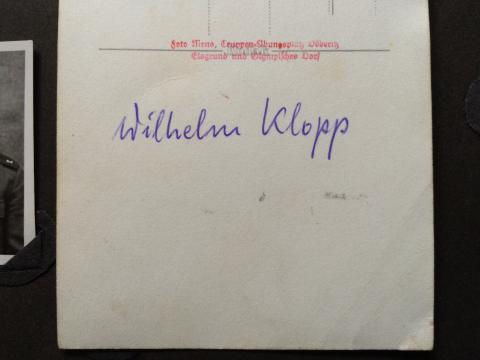 Foto Mens, Truppen-Übungsplatz Döberitz
Elsgrund und Olympisches Dorf
Wilhelm Klopp